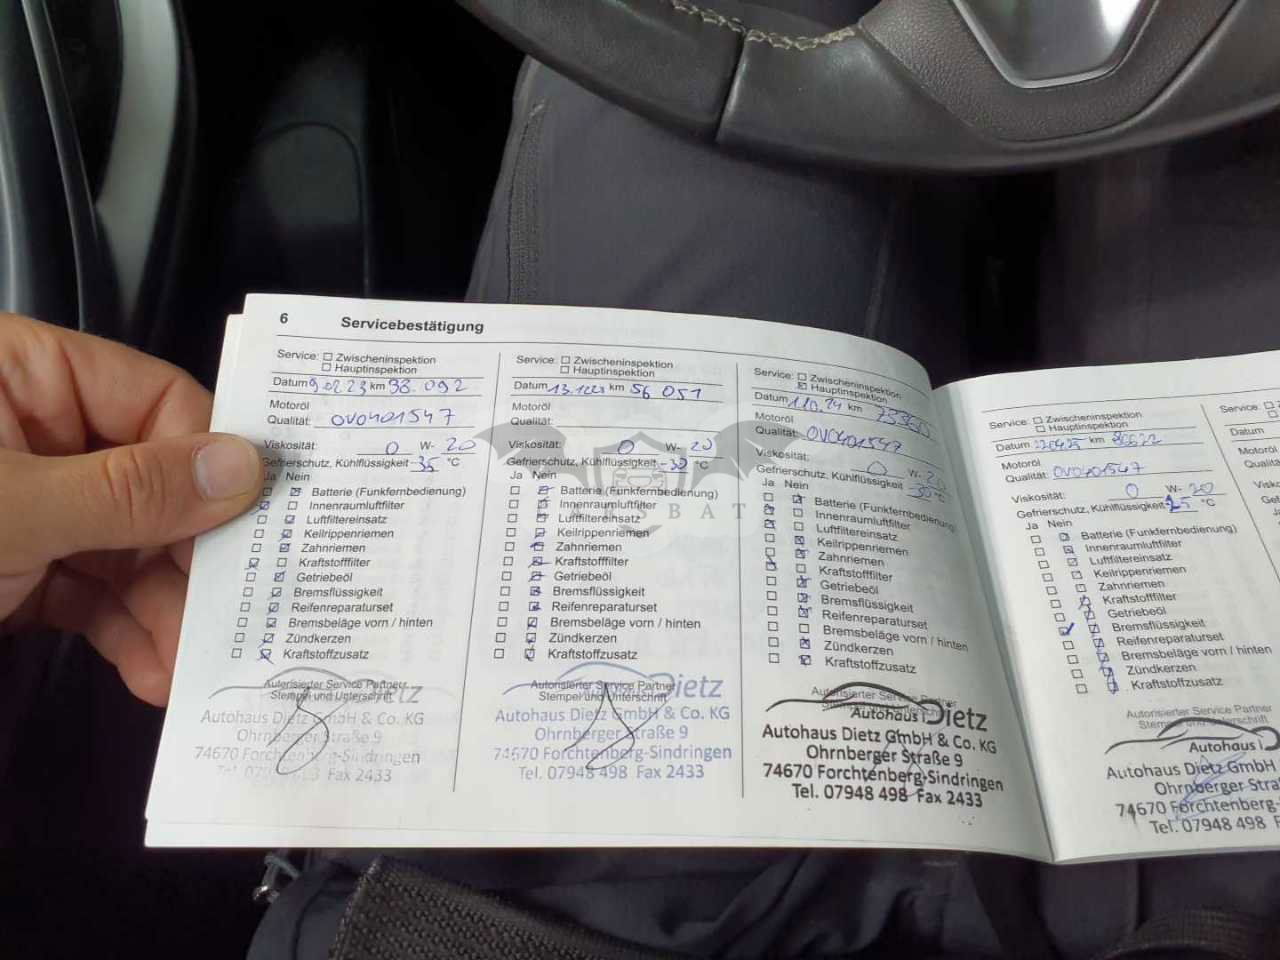 6 Servicebestätigung
Service: Zwischeninspektion
Hauptinspektion
Datum 9.02.23 km 38.092
Motoröl
Qualität: OV0401547
Viskosität: 0 W- 20
Gefrierschutz, Kühlflüssigkeit -35 °C
Ja Nein
Batterie (Funkfernbedienung)
Innenraumluftfilter
Luftfiltereinsatz
Keilrippenriemen
Zahnriemen
Kraftstofffilter
Getriebeöl
Bremsflüssigkeit
Reifenreparaturset
Bremsbeläge vorn / hinten
Zündkerzen
Kraftstoffzusatz
Autorisierter Service Partner
Stempel und Unterschrift
Dietz
Autohaus Dietz GmbH & Co. KG
Ohrnberger Straße 9
74670 Forchtenberg-Sindringen
Fax 2433
Service: Zwischeninspektion
Hauptinspektion
Datum km 56 051
Motoröl
Qualität:
Viskosität: 0 W- 20
Gefrierschutz, Kühlflüssigkeit -30 °C
Ja Nein
Batterie (Funkfernbedienung)
Innenraumluftfilter
Luftfiltereinsatz
Keilrippenriemen
Zahnriemen
Kraftstofffilter
Getriebeöl
Bremsflüssigkeit
Reifenreparaturset
Bremsbeläge vorn / hinten
Zündkerzen
Kraftstoffzusatz
Autorisierter Service Partner
Stempel und Unterschrift
Dietz
Autohaus Dietz GmbH & Co. KG
Ohrnberger Straße 9
74670 Forchtenberg-Sindringen
Tel. 07948 498 Fax 2433
Service: Zwischeninspektion
Hauptinspektion
Datum 1.10.24 km
Motoröl
Qualität: OV0401547
Viskosität: 0 W- 20
Gefrierschutz, Kühlflüssigkeit -30 °C
Ja Nein
Batterie (Funkfernbedienung)
Innenraumluftfilter
Luftfiltereinsatz
Keilrippenriemen
Zahnriemen
Kraftstofffilter
Getriebeöl
Bremsflüssigkeit
Reifenreparaturset
Bremsbeläge vorn / hinten
Zündkerzen
Kraftstoffzusatz
Autorisierter Service Partner
Autohaus Dietz
Autohaus Dietz GmbH & Co. KG
Ohrnberger Straße 9
74670 Forchtenberg-Sindringen
Tel. 07948 498 Fax 2433
Service: Zwischeninspektion
Hauptinspektion
Datum km
Motoröl
Qualität: OV0401547
Viskosität: 0 W- 20
Gefrierschutz, Kühlflüssigkeit °C
Ja Nein
Batterie (Funkfernbedienung)
Innenraumluftfilter
Luftfiltereinsatz
Keilrippenriemen
Zahnriemen
Kraftstofffilter
Getriebeöl
Bremsflüssigkeit
Reifenreparaturset
Bremsbeläge vorn / hinten
Zündkerzen
Kraftstoffzusatz
Autorisierter Service Partner
Stempel und Unterschrift
Autohaus
Autohaus Dietz GmbH
Ohrnberger
74670 Forchtenberg-
Tel. 07948 498
Service:
Datum
Motoröl